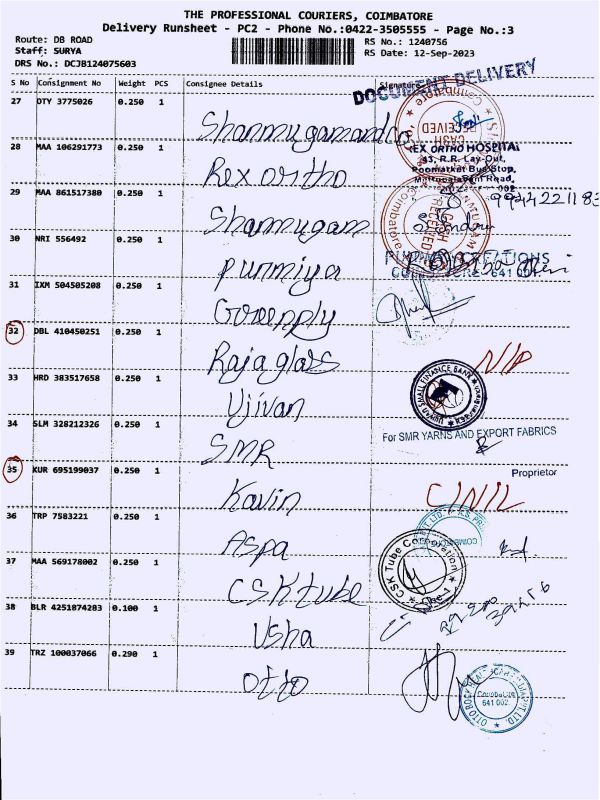 THE PROFESSIONAL COURIERS, COIMBATORE
Delivery Runsheet - PC2 - Phone No.:0422-3505555 - Page No.:3
Route: DB ROAD
RS No.: 1240756
Staff: SURYA
RS Date: 12-Sep-2023
DRS No.: DCJB124075603
S No Consignment No Weight PCS Consignee Details Signature
DOCUMENT DELIVERY
27 DTY 3775026 0.250 1
Shanmugamandco
CASH RECEIVED
28 MAA 106291773 0.250 1
Rex ortho
REX ORTHO HOSPITAL
43, R.R. Lay-Out,
Poomarket Bus Stop,
Mettupalayam Road,
29 MAA 861517380 0.250 1
Shanmugam
CASH RECEIVED
30 NRI 556492 0.250 1
Punmiya
CREATIONS
641 001
31 IXM 504505208 0.250 1
Greenply
32 DBL 410450251 0.250 1
Rajaglass
N/P
33 HRD 383517658 0.250 1
Ujivan
SMALL FINANCE BANK
34 SLM 328212326 0.250 1
SMR
For SMR YARNS AND EXPORT FABRICS
Proprietor
35 KUR 695199037 0.250 1
Kavin
36 TRP 7583221 0.250 1
Aspa
37 MAA 569178002 0.250 1
CSK tube
CSK Tube Corporation
38 BLR 4251874283 0.100 1
Usha
39 TRZ 100037066 0.290 1
otto
Coimbatore
641 002.